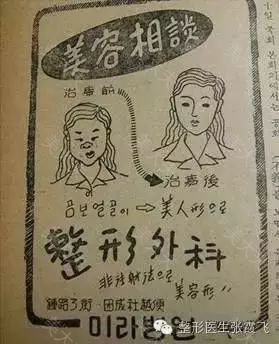 美容相談
治療前
治療後
곰보얼골이 → 美人形으로
整形外科
非注射法으로 美容形〃
鍾路3街·団成社越便
미라병원
整形医生张霞飞